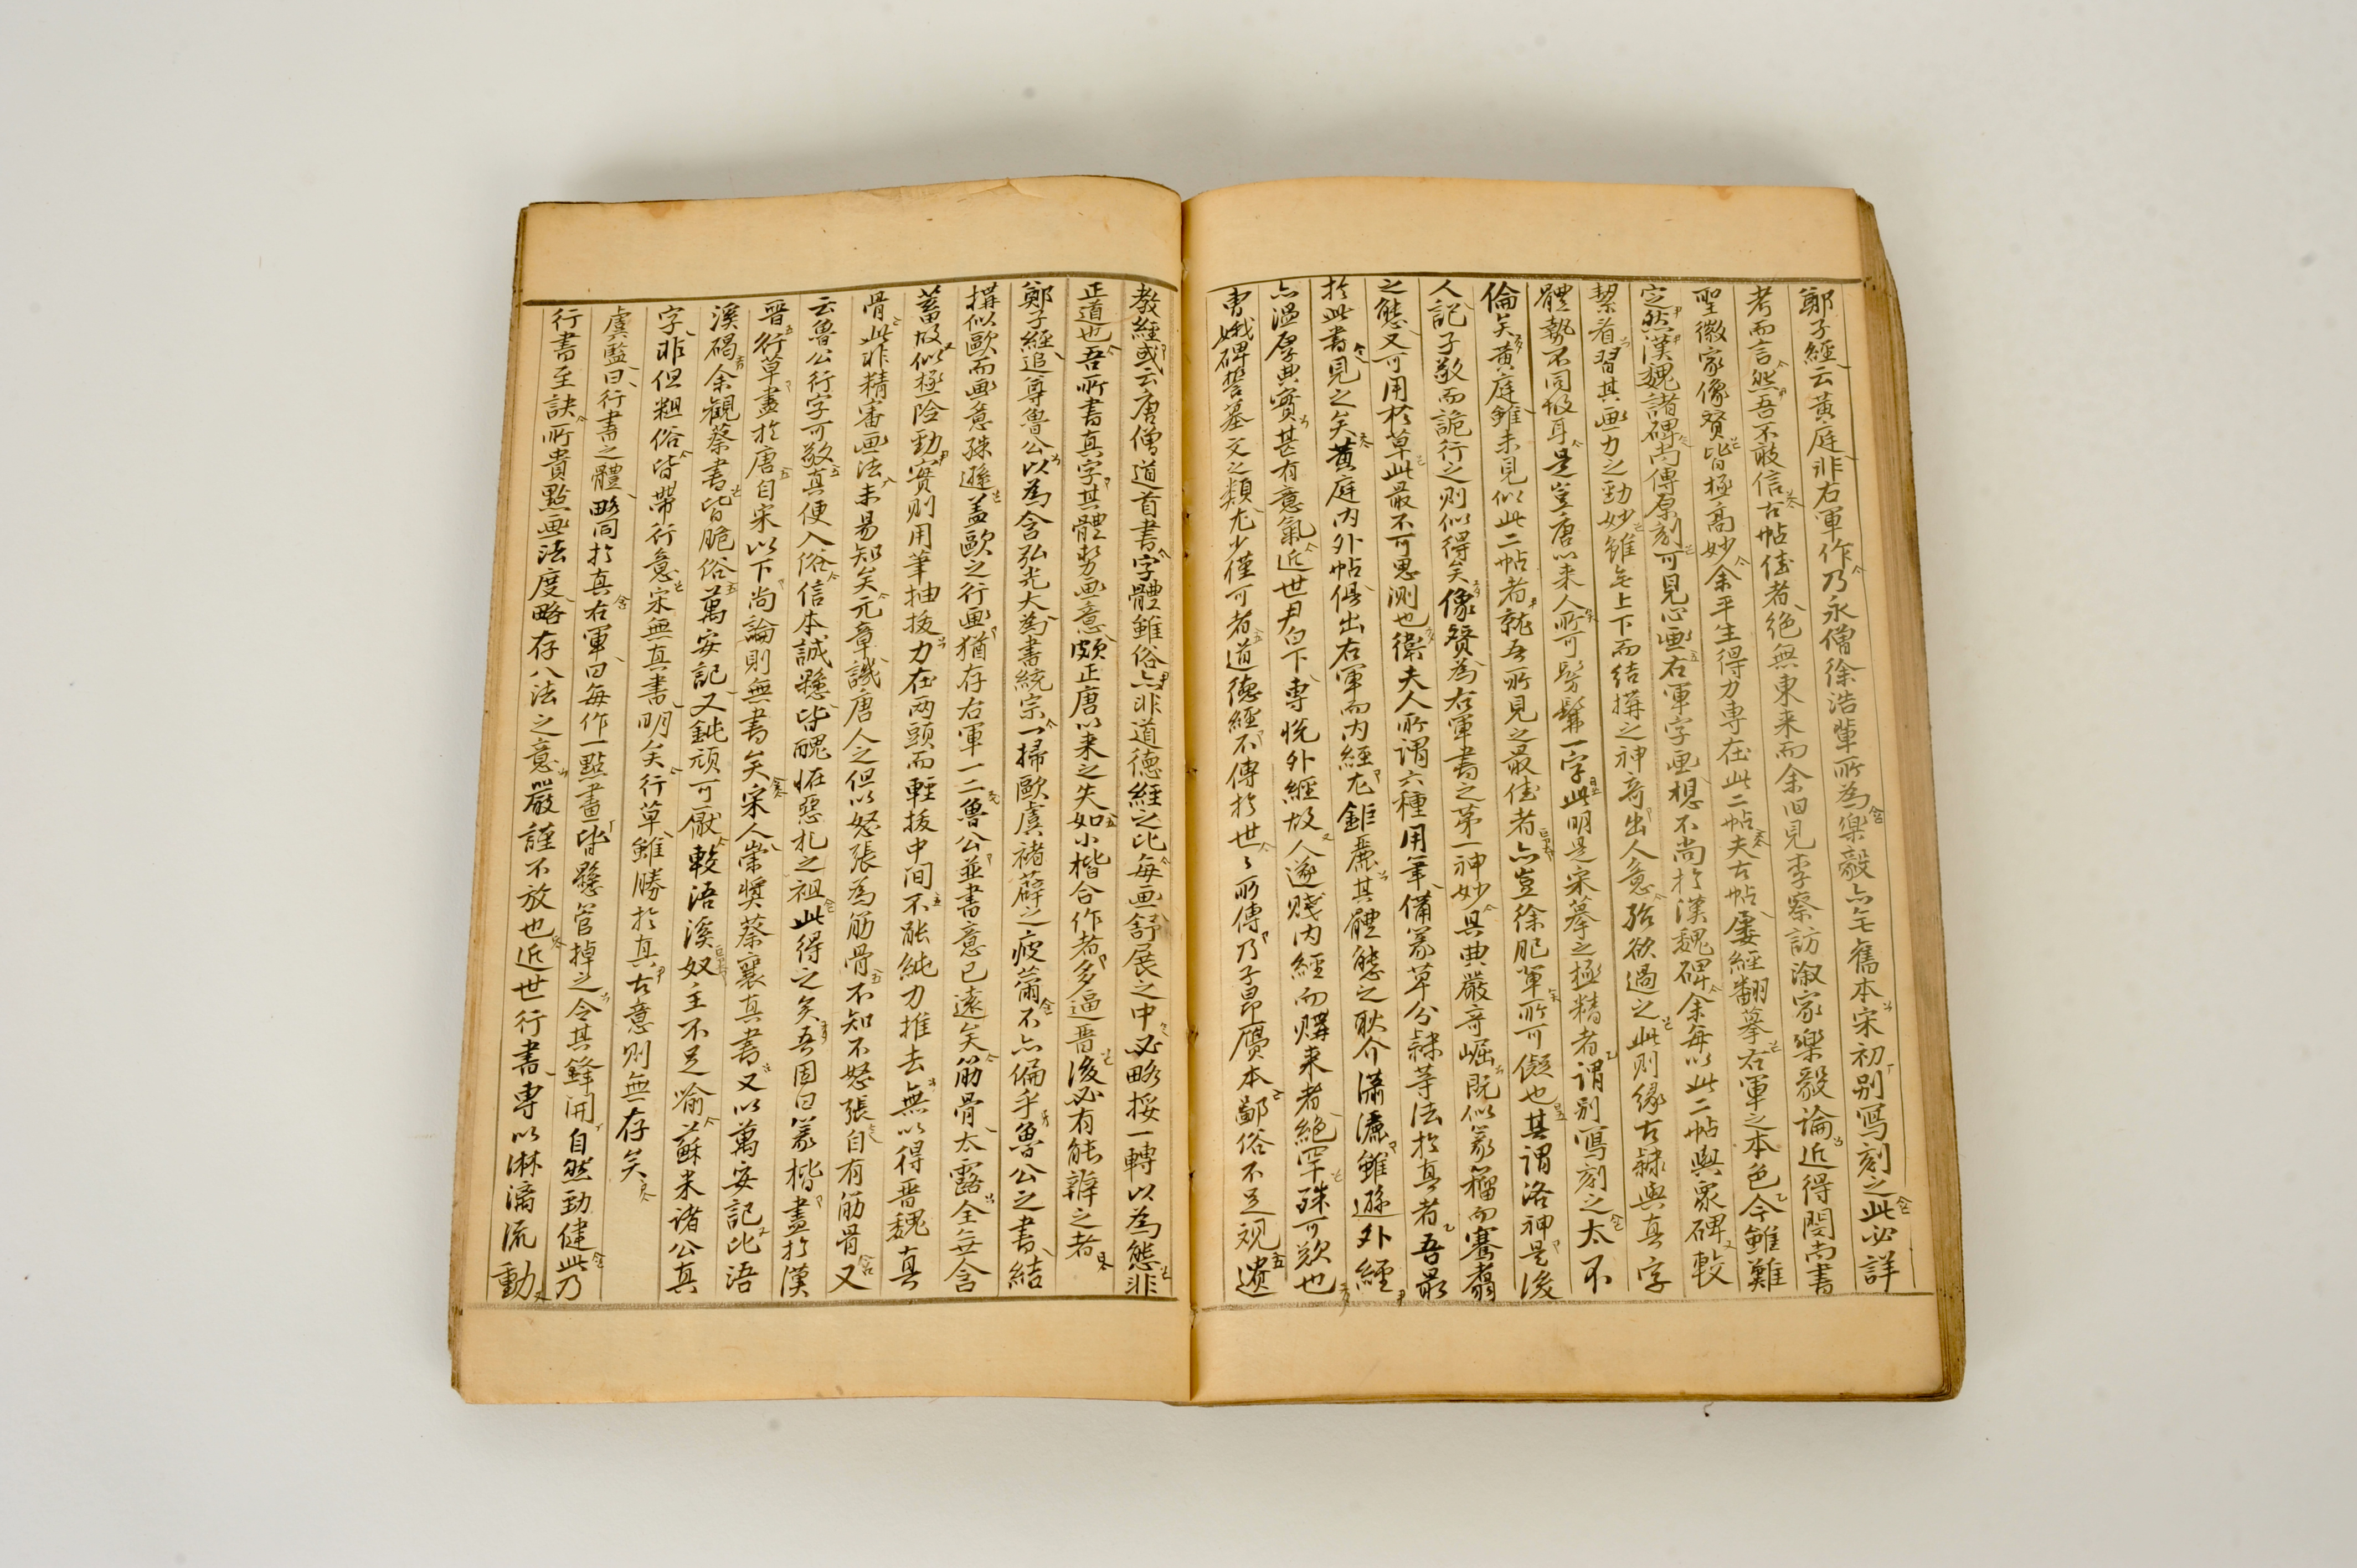 鄭子經云黃庭非右軍作乃永僧徐浩輩所為樂毅亦無舊本宋初別寫刻之此必詳
考而言然吾不敢信古帖佳者絕無東來而余旧見李察訪溆家樂毅論近得閔尚書
聖徵家像贊皆極高妙余平生得力專在此二帖夫古帖屢經翻摹右軍之本色今雖難
定然漢魏諸碑尚傳原刻可見心畫右軍字畫想不尚於漢魏碑余每以此二帖與眾碑較
絜看習其画力之勁妙雖無上下而結搆之神奇出人意殆欲過之此則緣古隸與真字
體勢不同故耳是豈唐以来人所可髣髴一字此明是宋摹之極精者謂別寫刻之太不
倫矣黃庭雖未見似此二帖者就吾所見之最佳者亦豈徐肥輩所可儗也其謂洛神是後
人記子敬而詭行之則似得矣像贊為右軍書之第一神妙其典嚴奇崛既似篆籀而騫翥
之態又可用於草此最不可思测也衛夫人所謂六種用筆備篆草分隸等法於真者吾最
於此書見之矣黄庭内外帖俱出右軍而内經尤鉅麗其體態之耿介瀟灑雖遜外經
亦溫厚典實甚有意氣近世尹白下專悅外經故人遂賤内經而購来者絕罕殊可歎也
曹娥碑誓墓文之類尤少僅可者道德經不傳於世々所傳乃子昂贗本鄙俗不足观遺
教經或云唐僧道首書字體雖俗亦非道德經之比每画舒展之中必略挼一轉以為態非
正道也吾所書真字其體勢画意頗正唐以来之失如小楷合作者多逼晋後必有能辨之者
鄭子經追尊魯公以為含弘光大為書統宗一掃歐虞褚薛之疲薾不亦偏乎魯公之書結
搆似歐而画意殊遜盖歐之行画猶存右軍一二魯公並書意已遠矣筋骨太露全無含
蓄故似極险勁實則用筆抽拔力在两頭而輕拔中间不能純力推去無以得晋魏真
骨此非精審画法未易知矣元章譏唐人之但以怒張為筋骨不知不怒張自有筋骨又
云魯公行字可敬真便入俗信本誠懸皆醜怪惡札之祖此得之矣吾固曰篆楷盡於漢
晋行草盡於唐自宋以下尚論則無書矣宋人崇奬蔡襄真書又以萬安記比浯
溪碣余觀蔡書皆脆俗萬安記又鈍頑可厭較浯溪奴主不足喻蘇米诸公真
字非但粗俗皆帶行意宋無真書明矣行草雖勝於真古意則無存矣
虞監曰行書之體略同於真右軍曰每作一點畫皆懸管掉之令其鋒開自然勁健此乃
行書至訣所貴點画法度略存八法之意嚴謹不放也近世行書専以淋漓流動